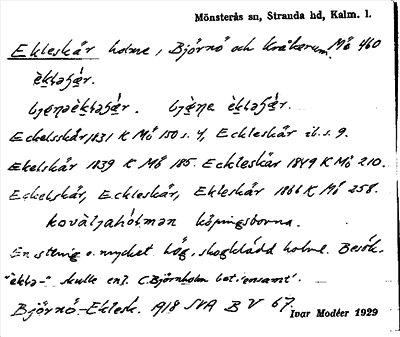 Mönsterås sn, Stranda hd, Kalm. l.
Ekleskär holme, Björnö och Kråkerum. Mö 460
Eckelsskär 1831 K Mö 150 s. 4, Eckleskär ib. s. 9.
Ekelskär 1839 K Mö 185. Eckleskär 1849 K Mö 210.
Eckelskär, Eckleskär, Ekleskär 1866 K Mö 258.
köpingsborna.
En stenig o. mycket hög, skogklädd holme. Besök.
skulle enl. C. Björnholm bet. 'ensamt'.
Björnö-Eklesk. A18 SVA B V 67.
Ivar Modéer 1929